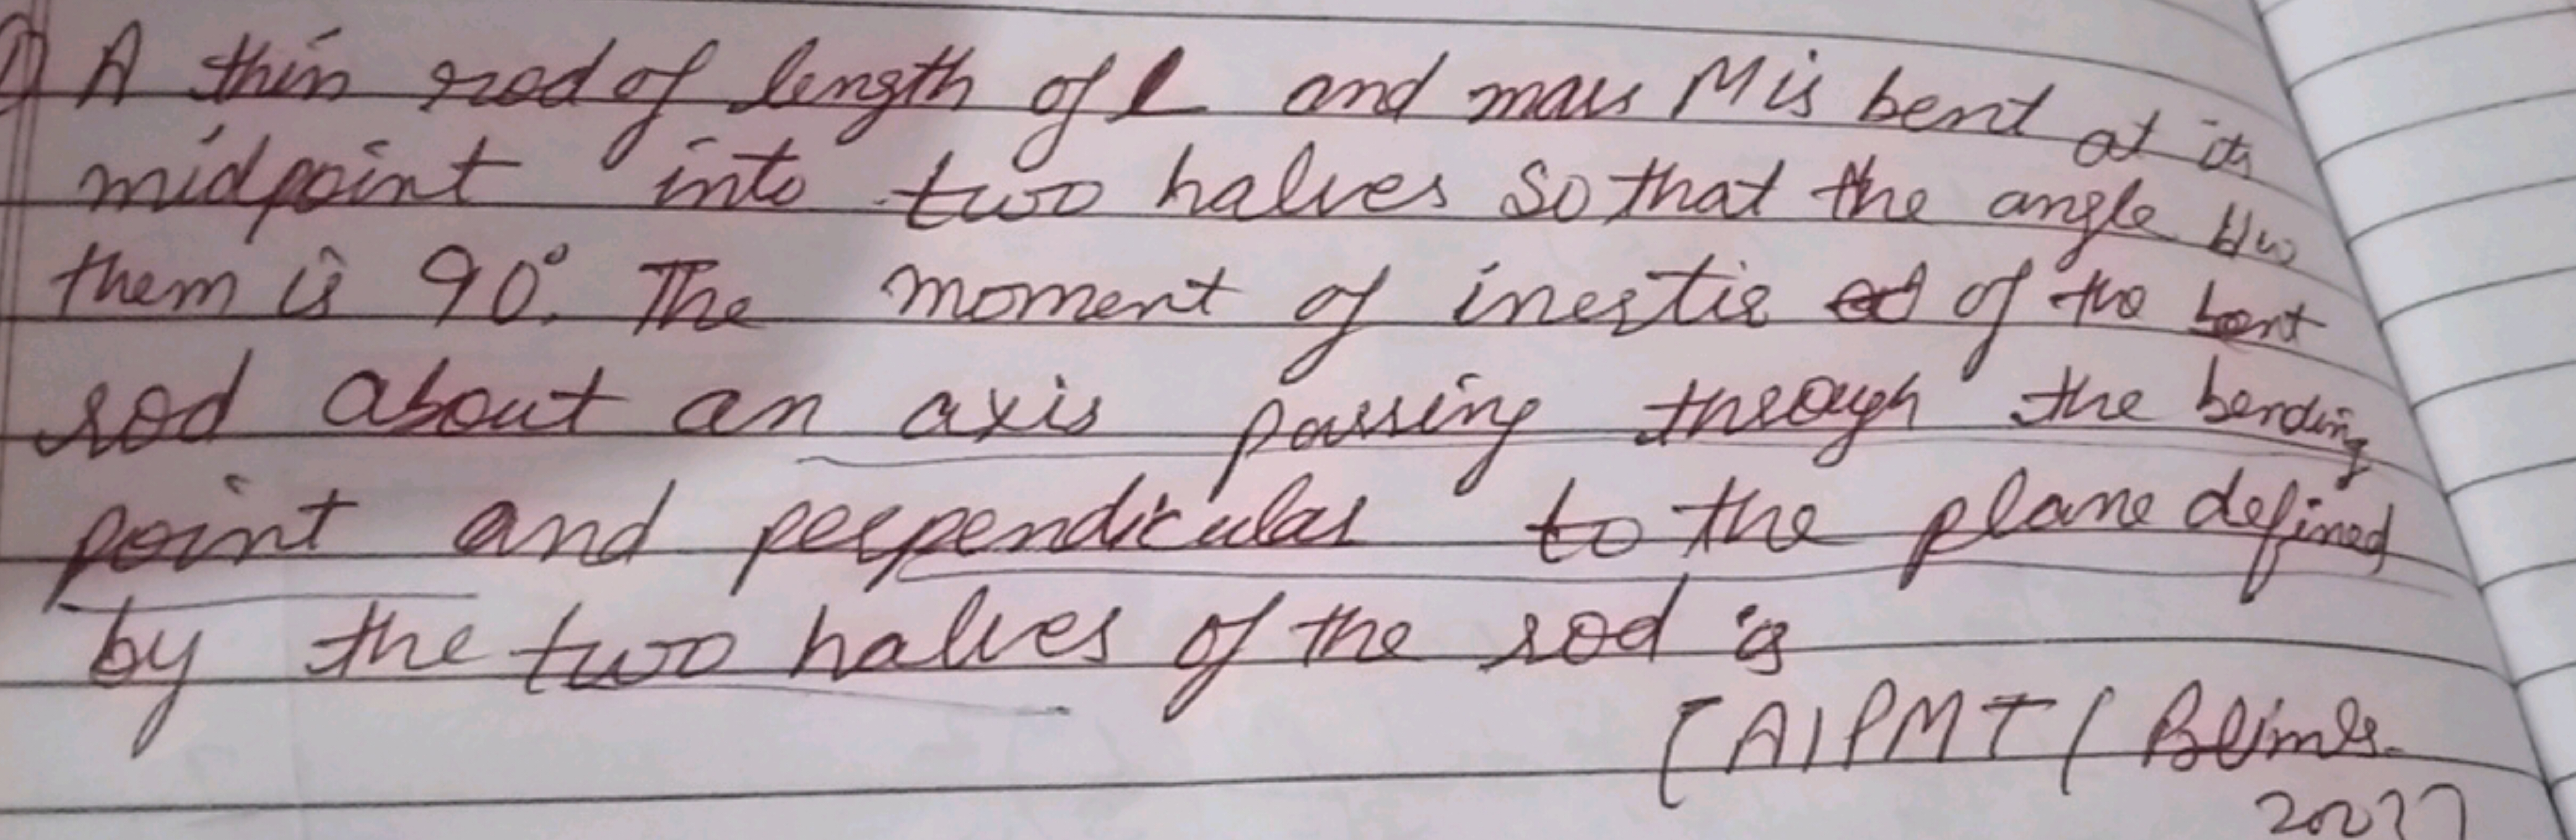 A thin rod of length of L and mass M is bent at its
midpoint into two halves so that the angle b/w
them is 90°. The moment of inertia of the bent
rod about an axis passing through the bending
point and perpendicular to the plane defined
by the two halves of the rod is
[AIPMT (